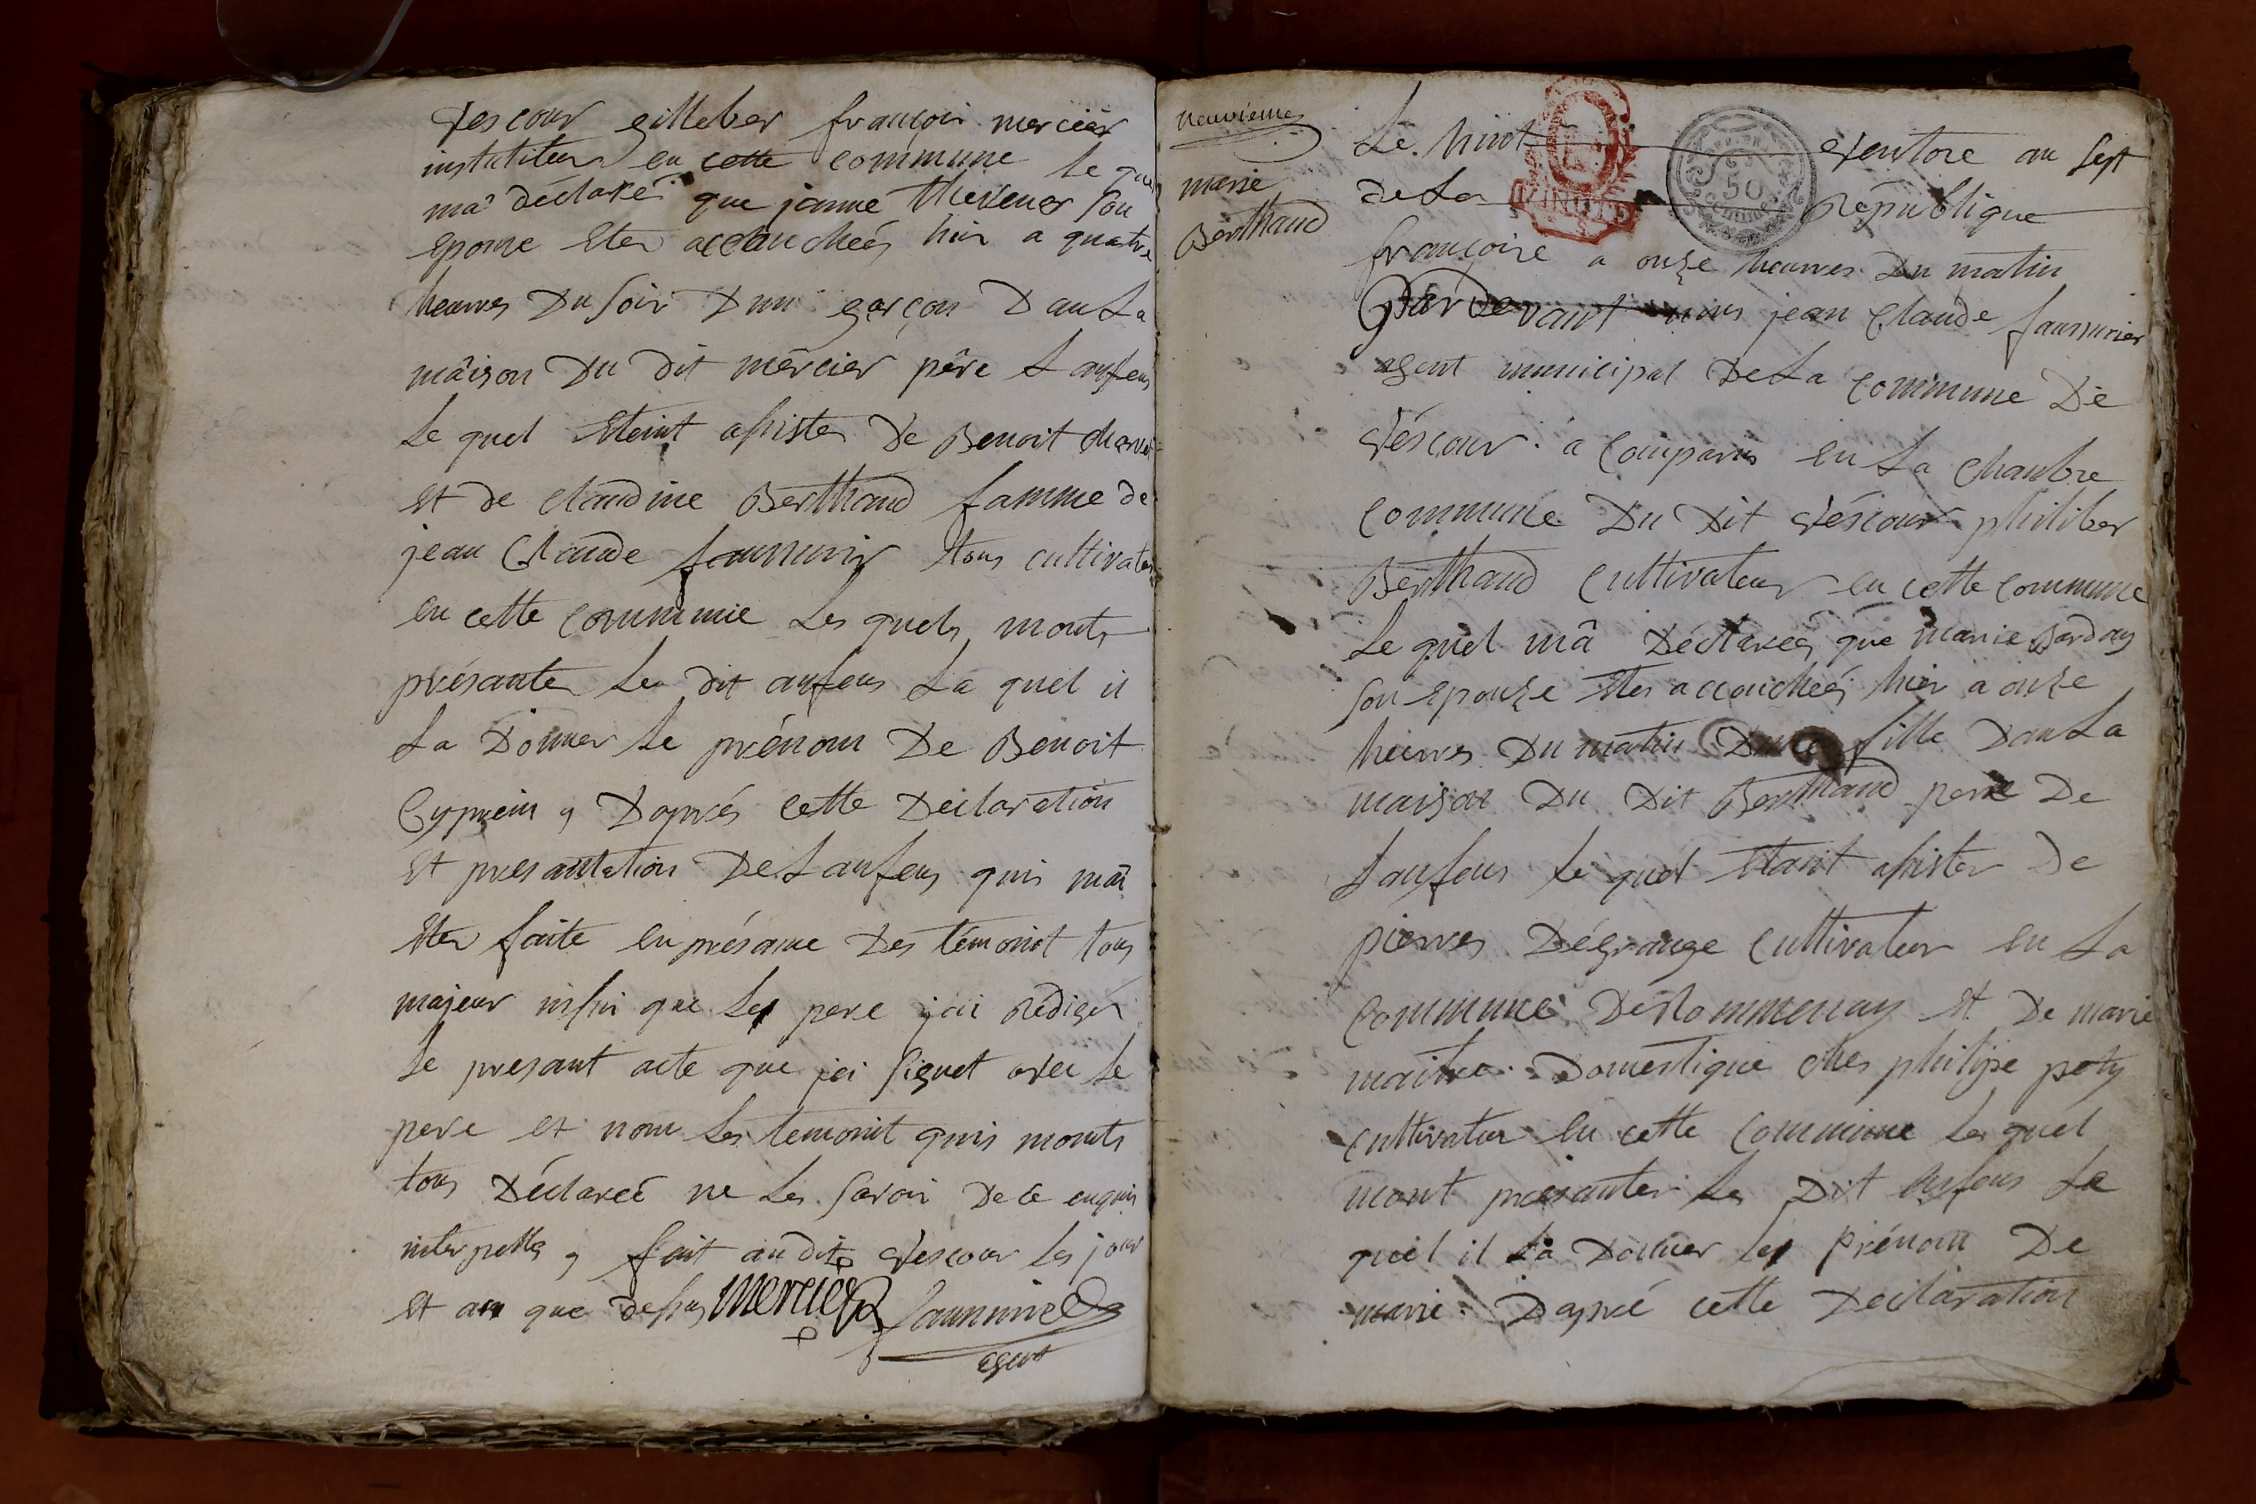 vescour gilleber françois mercier
instutiteur en cette commune le quel
ma déclareé que janne thevener son
epouse eter accoucheéz hier a quatre
heures Du soir Dun garçon Dan La
mâison Du dit mércier pére Lanfens
Le quel eteint assister De Benoit
et de claudine Berthaud famme de
jean Claude faunurier tous cultivateur
en cette commune Les quels monts
présanter Le dit anfens La quel il
La Donner Le prénom De Benoit
Cyprein, Daprés cette Declaration
et presantation De Lanfens quis mai
eter faite en présance Des témoint tous
majeur insin que Les pere jai Rédiger
Le presant acte que jai signet avec Le
pere et nom Les temoint quis monts
tous Déclareé ne Les savoir De ce enquis
interpelle, fait au dit vescour Les jour
et an que Dessus mercier faunurier
agent
neuvieme
marie
Berthaud
Le huit ventose an sept
de La République
françoise a onze heures Du matin
Par Devant nous jean Claude faunurier
agent municipal De La Commune De
véscour a Comparus en La Chambre
Commune Du Dit véscour philiber
Berthaud Cultivateur en cette commune
Le quel mâ Déclareéz que marie Barday
son epouze eter accoucheéz hier a onze
heures Du matin Dune fille Dan La
maison Du Dit Berthaud pere De
Lanfens Le quel etant assister De
pierres Dégrange Cultivateur en La
Commune Déstommenay et De marie
maitre Domestique ches philipe poty
cultivateur en cette Commune Les quel
mont présanter Les Dit anfens Le
quel il La Donner Les Prénom De
marie. Daprés cette Declaration